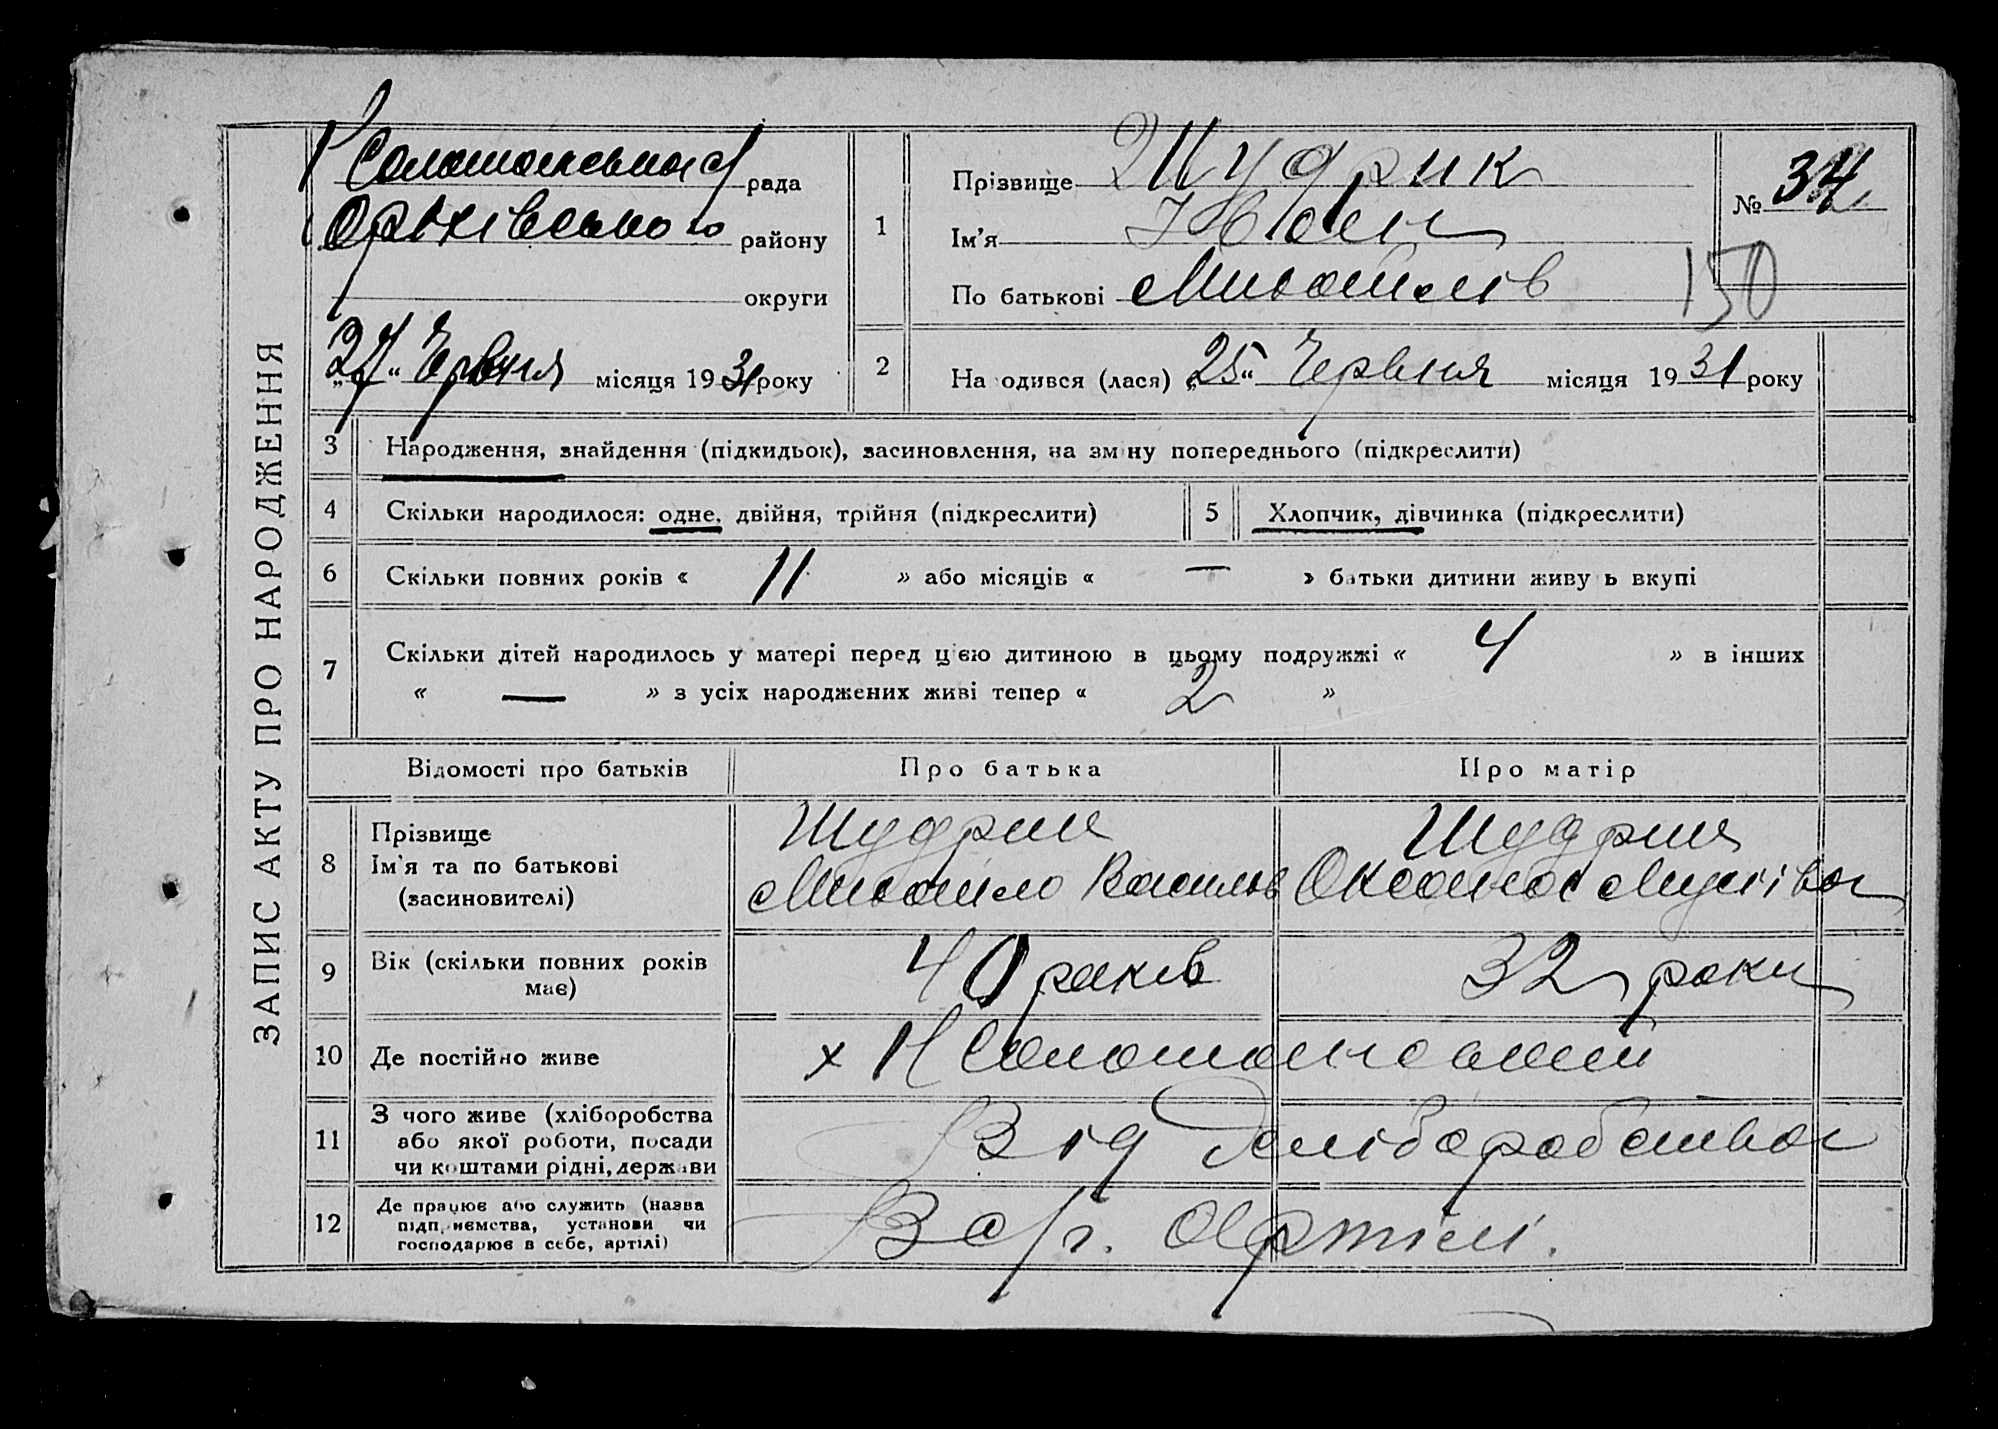 ЗАПИС АКТУ ПРО НАРОДЖЕННЯ
рада
Оріхівського району
округи
„27“ Червня місяця 1931 року
1
Прізвище Щудрик
Ім'я Іван
По батькові Михайлів
№ 34
150
2
Народився (лася) „25“ Червня місяця 1931 року
3 Народження, знайдення (підкидьок), засиновлення, на зміну попереднього (підкреслити)
4 Скільки народилося: одне, двійня, трійня (підкреслити)
5 Хлопчик, дівчинка (підкреслити)
6 Скільки повних років « 11 » або місяців « — » батьки дитини живуть вкупі
7 Скільки дітей народилось у матері перед цією дитиною в цьому подружжі « 4 » в інших
« — » з усіх народжених живі тепер « 2 »
Відомості про батьків Про батька Про матір
8 Прізвище
Ім'я та по батькові
(засиновителі)
Щудрик
Михайло Васильов
Щудрик
Оксана
9 Вік (скільки повних років
має)
40 років
32 роки
10 Де постійно живе
х Н
11 З чого живе (хліборобства
або якої роботи, посади
чи коштами рідні, держави
Від хліборобства
12 Де працює або служить (назва
підприємства, установи чи
господарює в себе, артілі)
В с/г. Артілі.